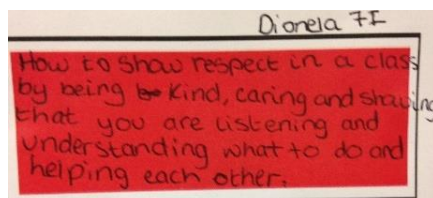 Dionela 7I
How to show respect in a class
by being kind, caring and showing
that you are listening and
understanding what to do and
helping each other.